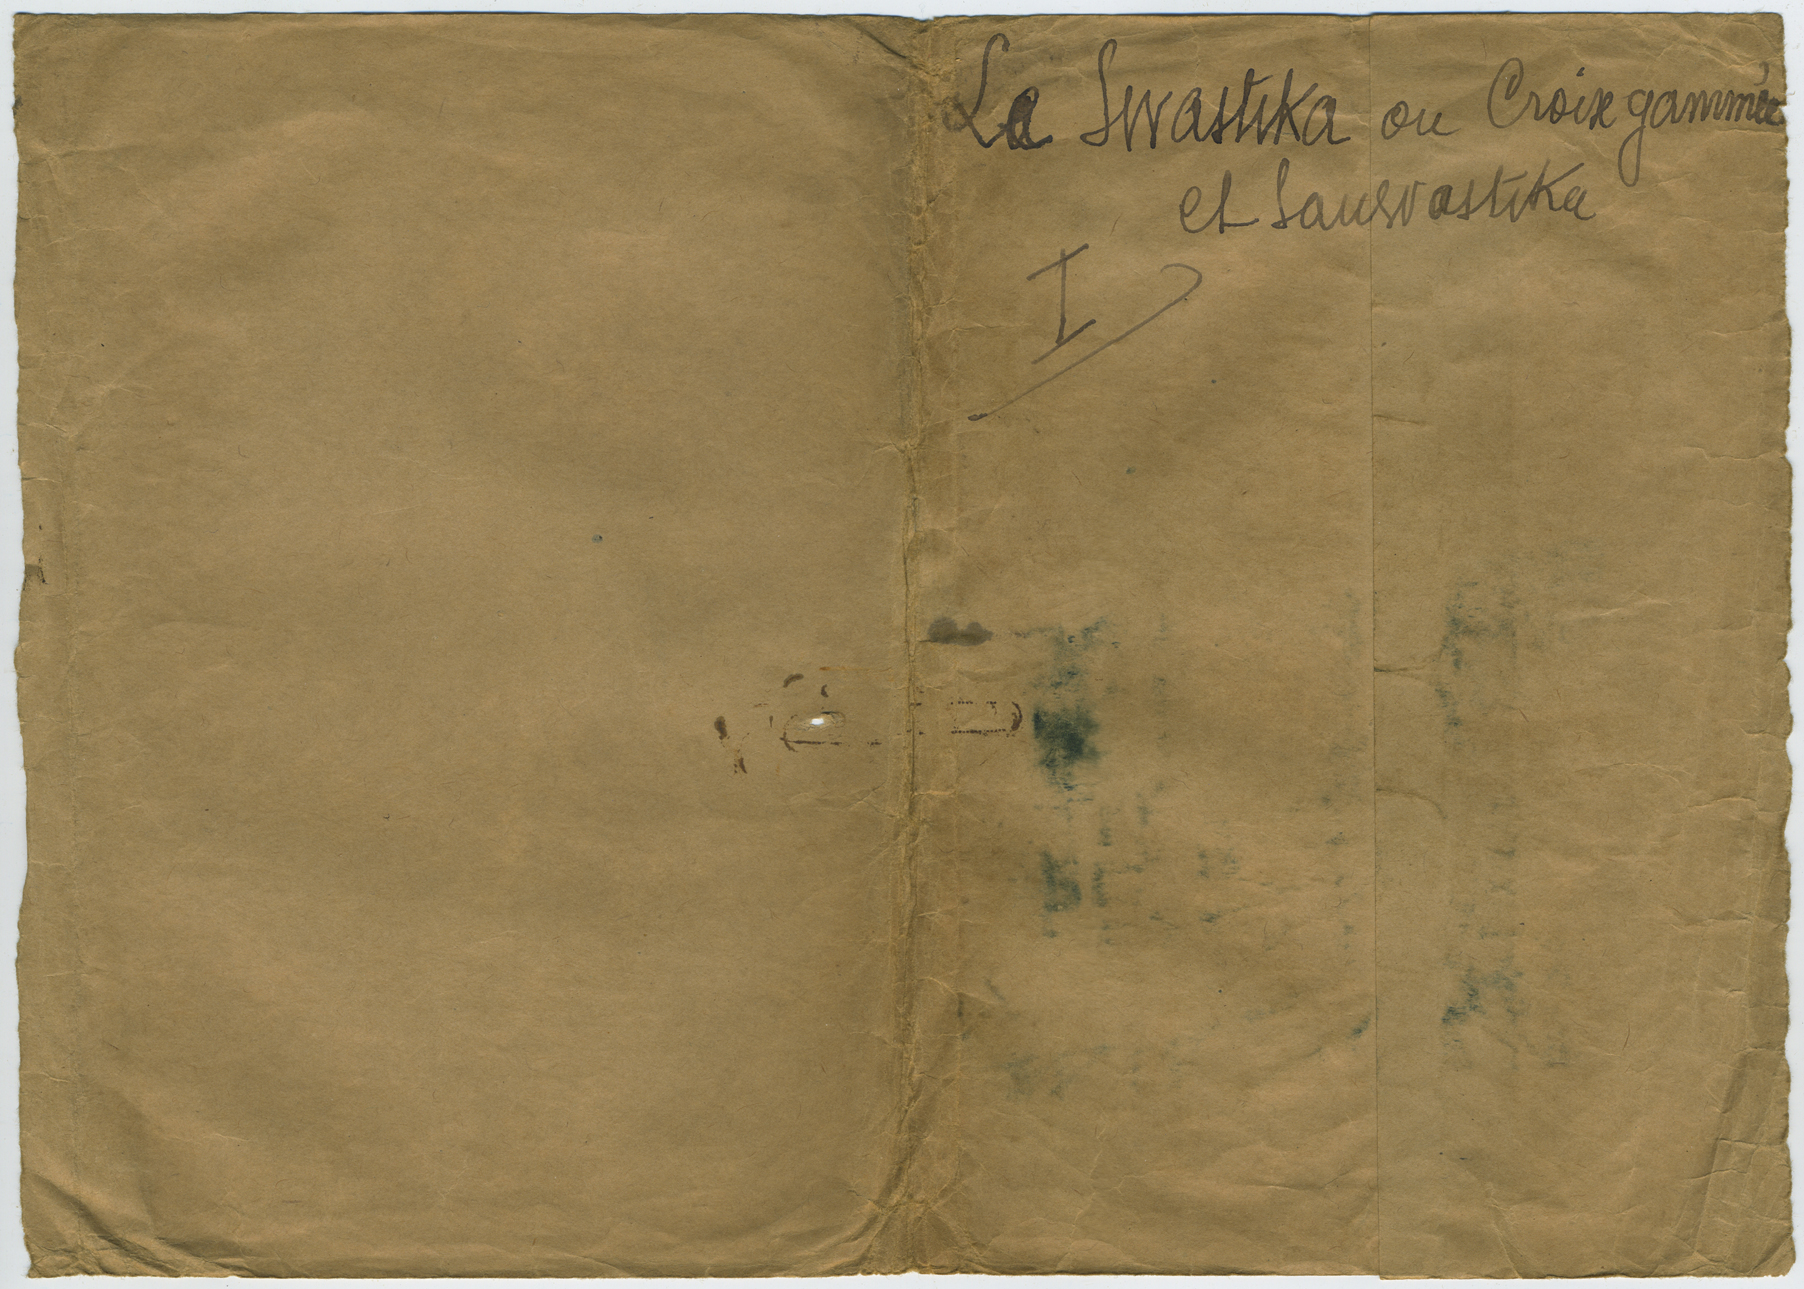 La Swastika ou Croix gammée
et Sauwastika
I